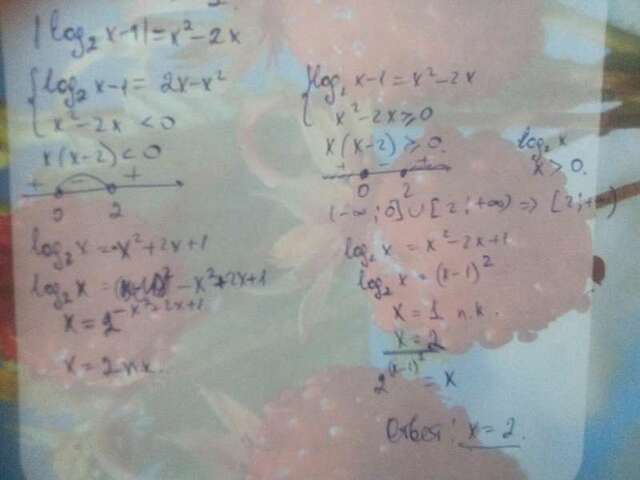 |log₂ x-1| = x² - 2x
{ log₂ x-1 = 2x-x²
x² - 2x < 0
x(x-2) < 0
+ - +
0 2
log₂ x = -x² + 2x + 1
log₂ x = -x² + 2x + 1
x = 2^(-x²+2x+1)
x = 2 п.к.
{ log₂ x-1 = x² - 2x
x² - 2x ≥ 0
x(x-2) ≥ 0.
+ - +
0 2
(-∞; 0] ∪ [2; +∞) => [2; +∞)
log₂ x
x > 0.
log₂ x = x² - 2x + 1
log₂ x = (x-1)²
x = 1 п.к.
x = 2
2^((x-1)²) = x
Ответ: x = 2.